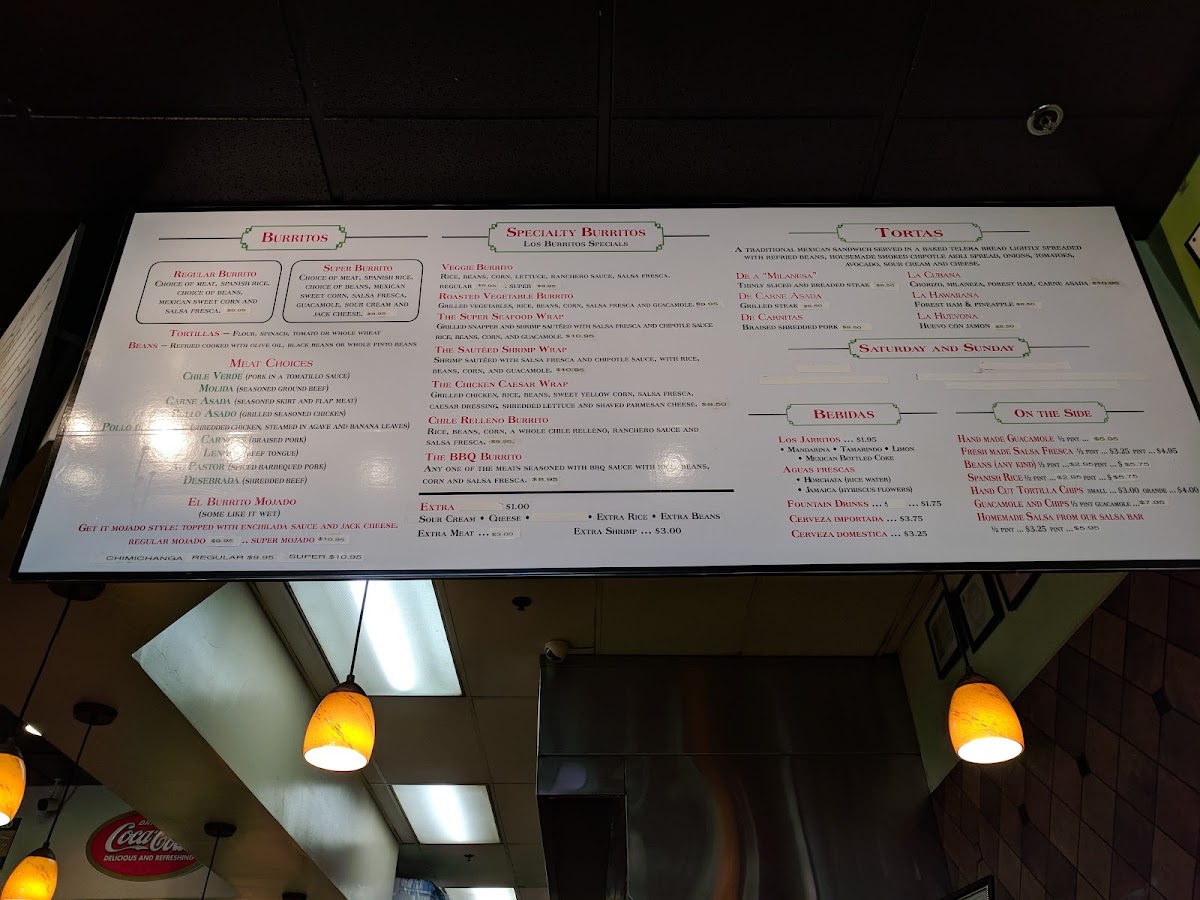 BURRITOS
REGULAR BURRITO
CHOICE OF MEAT, SPANISH RICE,
CHOICE OF BEANS,
MEXICAN SWEET CORN AND
SALSA FRESCA.
SUPER BURRITO
CHOICE OF MEAT, SPANISH RICE,
CHOICE OF BEANS, MEXICAN
SWEET CORN, SALSA FRESCA,
GUACAMOLE, SOUR CREAM AND
JACK CHEESE.
TORTILLAS – FLOUR, SPINACH, TOMATO OR WHOLE WHEAT
BEANS – REFRIED COOKED WITH OLIVE OIL, BLACK BEANS OR WHOLE PINTO BEANS
MEAT CHOICES
CHILE VERDE (PORK IN A TOMATILLO SAUCE)
MOLIDA (SEASONED GROUND BEEF)
CARNE ASADA (SEASONED SKIRT AND FLAP MEAT)
ASADO (GRILLED SEASONED CHICKEN)
POLLO (SHREDDED CHICKEN, STEAMED IN AGAVE AND BANANA LEAVES)
(BRAISED PORK)
(BEEF TONGUE)
PASTOR (SPICED BARBEQUED PORK)
DESEBRADA (SHREDDED BEEF)
EL BURRITO MOJADO
(SOME LIKE IT WET)
GET IT MOJADO STYLE: TOPPED WITH ENCHILADA SAUCE AND JACK CHEESE.
REGULAR MOJADO $9.95 .. SUPER MOJADO $10.95
CHIMICHANGA REGULAR $9.95 SUPER $10.95
SPECIALTY BURRITOS
LOS BURRITOS SPECIALS
VEGGIE BURRITO
RICE, BEANS, CORN, LETTUCE, RANCHERO SAUCE, SALSA FRESCA.
REGULAR . SUPER
ROASTED VEGETABLE BURRITO
GRILLED VEGETABLES, RICE, BEANS, CORN, SALSA FRESCA AND GUACAMOLE. $9.95
THE SUPER SEAFOOD WRAP
GRILLED SNAPPER AND SHRIMP SAUTÉED WITH SALSA FRESCA AND CHIPOTLE SAUCE
RICE, BEANS, CORN, AND GUACAMOLE. $10.95
THE SAUTÉED SHRIMP WRAP
SHRIMP SAUTÉED WITH SALSA FRESCA AND CHIPOTLE SAUCE, WITH RICE,
BEANS, CORN, AND GUACAMOLE. $10.95
THE CHICKEN CAESAR WRAP
GRILLED CHICKEN, RICE, BEANS, SWEET YELLOW CORN, SALSA FRESCA,
CAESAR DRESSING, SHREDDED LETTUCE AND SHAVED PARMESAN CHEESE. $8.50
CHILE RELLENO BURRITO
RICE, BEANS, CORN, A WHOLE CHILE RELLENO, RANCHERO SAUCE AND
SALSA FRESCA. $9.95
THE BBQ BURRITO
ANY ONE OF THE MEATS SEASONED WITH BBQ SAUCE WITH BEANS,
CORN AND SALSA FRESCA. $8.95
EXTRA $1.00
SOUR CREAM • CHEESE • • EXTRA RICE • EXTRA BEANS
EXTRA MEAT ... $3.00 EXTRA SHRIMP ... $3.00
TORTAS
A TRADITIONAL MEXICAN SANDWICH SERVED IN A BAKED TELERA BREAD LIGHTLY SPREADED
WITH REFRIED BEANS, HOUSEMADE SMOKED CHIPOTLE AIOLI SPREAD, ONIONS, TOMATOES,
AVOCADO, SOUR CREAM AND CHEESE.
DE A "MILANESA"
THINLY SLICED AND BREADED STEAK
DE CARNE ASADA
GRILLED STEAK $8.50
DE CARNITAS
BRAISED SHREDDED PORK $8.50
LA CUBANA
CHORIZO, MILANEZA, FOREST HAM, CARNE ASADA $10.95
LA HAWAIIANA
FOREST HAM & PINEAPPLE $8.50
LA HUEVONA
HUEVO CON JAMON $8.50
SATURDAY AND SUNDAY
BEBIDAS
LOS JARRITOS ... $1.95
• MANDARINA • TAMARINDO • LIMON
• MEXICAN BOTTLED COKE
AGUAS FRESCAS
• HORCHATA (RICE WATER)
• JAMAICA (HYBISCUS FLOWERS)
FOUNTAIN DRINKS ... $ ... $1.75
CERVEZA IMPORTADA ... $3.75
CERVEZA DOMESTICA ... $3.25
ON THE SIDE
HAND MADE GUACAMOLE ½ PINT ... $5.95
FRESH MADE SALSA FRESCA ½ PINT ... $3.25 PINT ... $4.95
BEANS (ANY KIND) ½ PINT ...$2.95 PINT ... $5.75
SPANISH RICE ½ PINT ...$2.95 PINT ... $5.75
HAND CUT TORTILLA CHIPS SMALL ... $3.00 GRANDE ... $4.00
GUACAMOLE AND CHIPS ½ PINT GUACAMOLE ...$7.95
HOMEMADE SALSA FROM OUR SALSA BAR
½ PINT ... $3.25 PINT ... $5.95
Coca-Cola
DELICIOUS AND REFRESHING